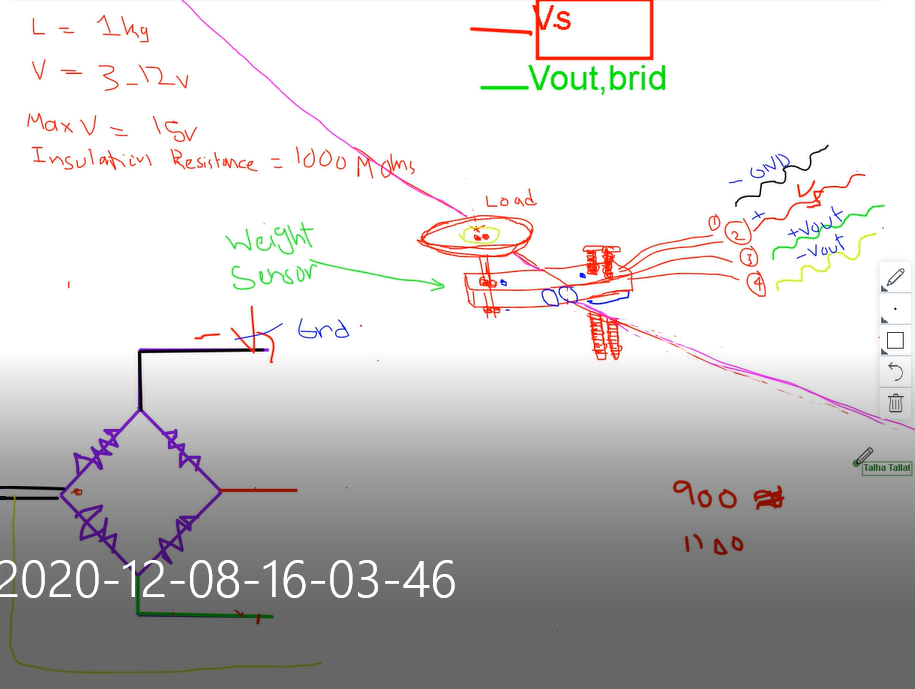 L = 1kg
V = 3-12v
Max V = 15v
Insulation Resistance = 1000 M Ohms
Vs
Vout,brid
Load
Weight
Sensor
- GND
+
+Vout
-Vout
1
2
3
4
Grnd
900
1100
Talha Tallat
2020-12-08-16-03-46